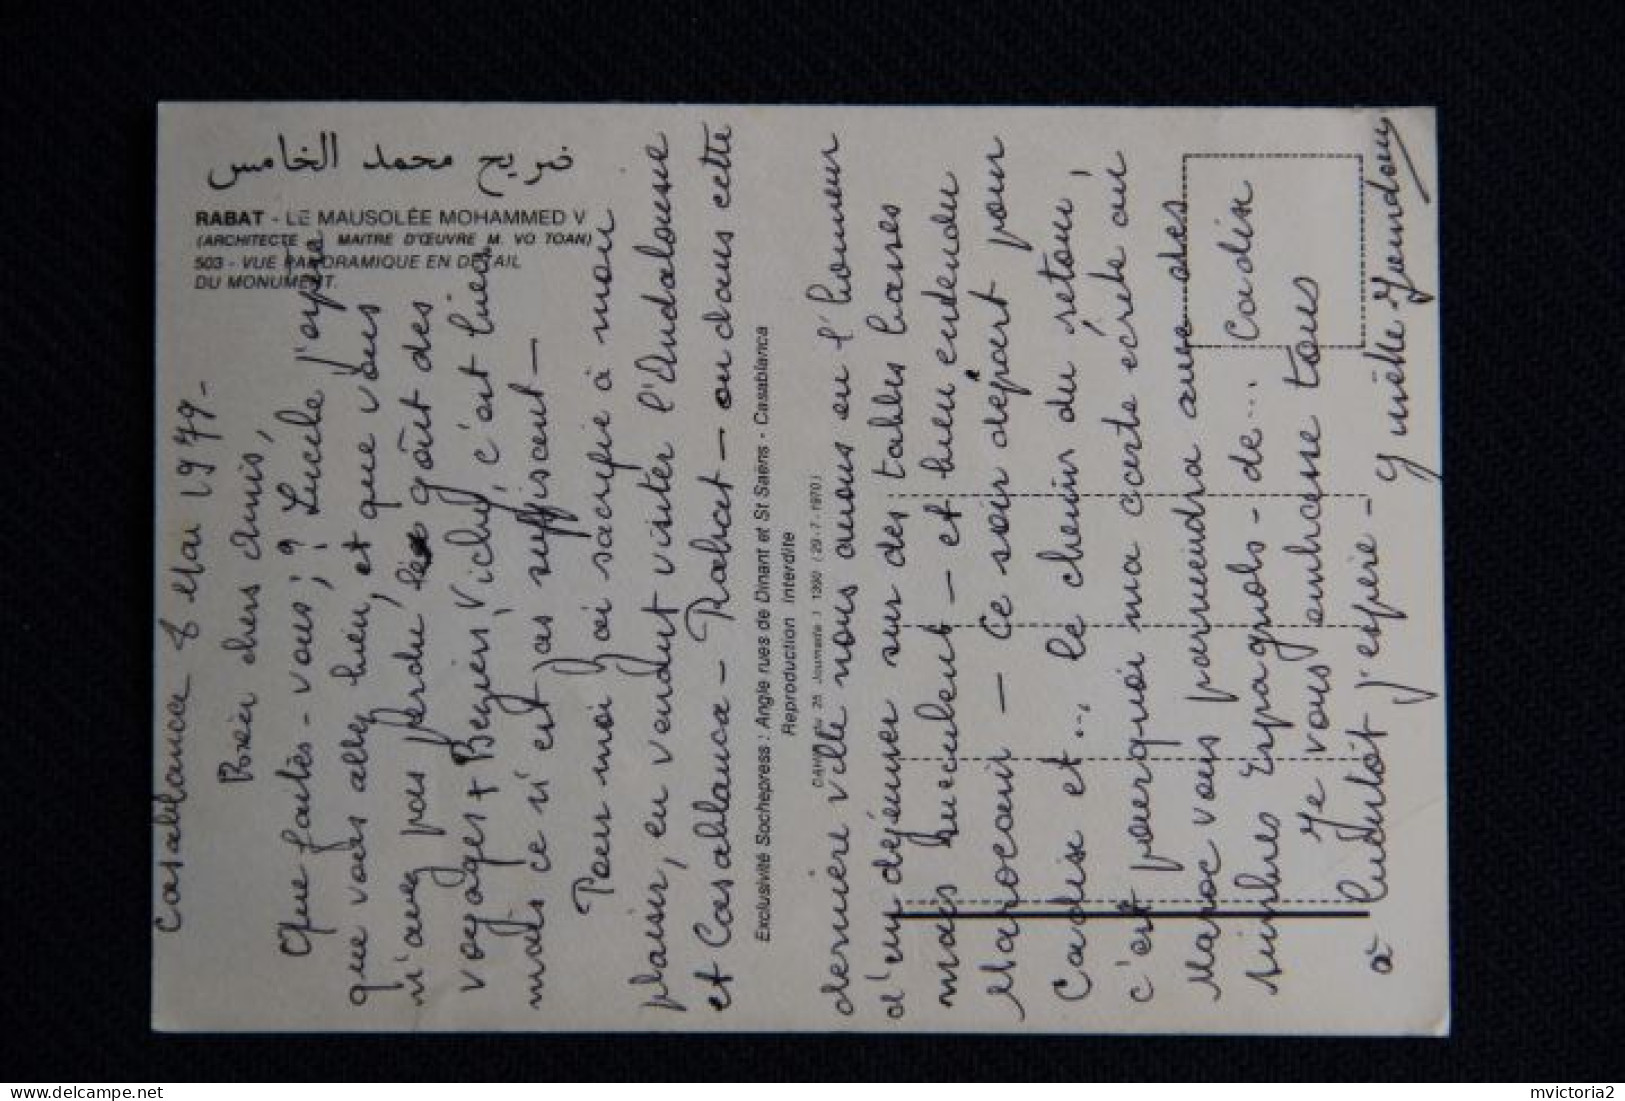 ضريح محمد الخامس
RABAT - LE MAUSOLÉE MOHAMMED V
(ARCHITECTE MAITRE D'ŒUVRE M. VO TOAN)
503 - VUE PANORAMIQUE EN DETAIL
DU MONUMENT.
Casablanca 8 Mai 1979-
Bien chers Amis,
Que faites-vous ; ? Lucile j'espère
que vous allez bien, et que vous
n'avez pas perdu le goût des
voyages + Beziers Vichy, c'est bien
mais ce n'est pas suffisant-
Pour moi j'ai sacrifié à mon
plaisir, en voulant visiter l'Andalousie
et Casablanca - Rabat - ou dans cette
Exclusivité Sochepress : Angle rues de Dinant et St Saëns - Casablanca
Reproduction Interdite
25 Joumada I 1390 (29-7-1970)
dernière ville nous avons eu l'honneur
d'un déjeuner sur des tables basses
mais succulent - et bien entendu
Marocain - Ce soir départ pour
Cadix et... le chemin du retour,
c'est pourquoi ma carte écrite au
Maroc vous parviendra avec des
timbres Espagnols - de... Cadix
Je vous embrasse tous
à bientôt j'espère - Ginette
mvictoria2